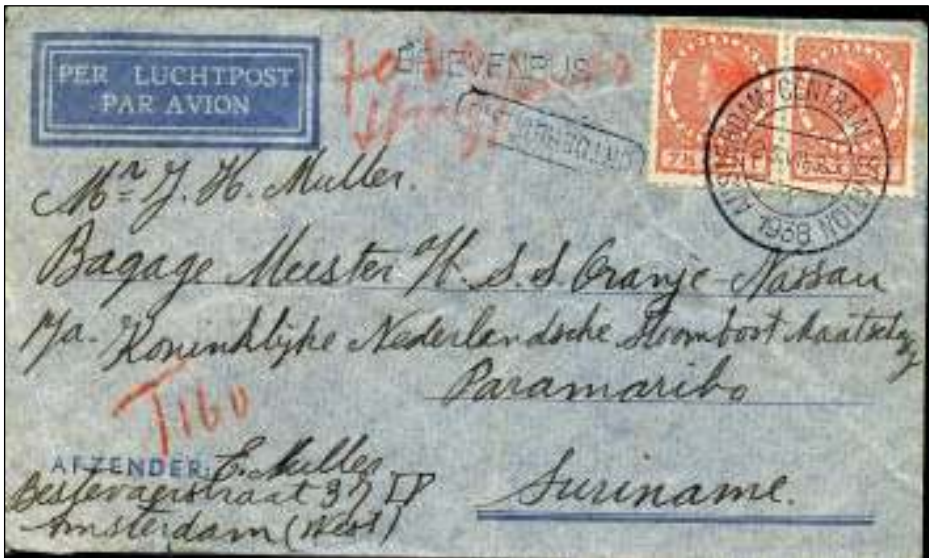 PER LUCHTPOST
PAR AVION
BRIEVENBUS
7½
AMSTERDAM-CENTRAAL STATION
1938
Mr J. H. Muller.
Bagage Meester H. S. S. Oranje-Nassau
p/a. Koninklijke Nederlandsche Stoomboot Maatschpy
Paramaribo
Suriname.
T160
AFZENDER: E. Muller
Bestevaerstraat 37 II
Amsterdam (West)